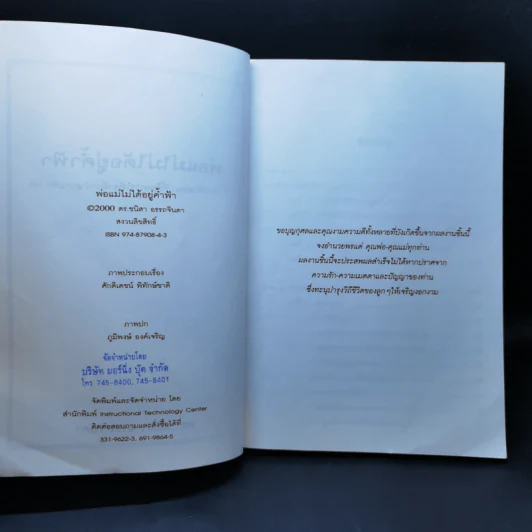 พ่อแม่ไม่ได้อยู่ค้ำฟ้า
©2000 ดร.ชนิสา อรรถจินดา
สงวนลิขสิทธิ์
ISBN 974-87908-4-3
ภาพประกอบเรื่อง
ศักดิเดชน์ พิทักษ์ชาติ
ภาพปก
ภูมิพงษ์ องค์เจริญ
จัดจำหน่ายโดย
บริษัท มอร์นิ่ง บุ๊ค จำกัด
โทร 745-8400, 745-8401
จัดพิมพ์และจัดจำหน่าย โดย
สำนักพิมพ์ Instructional Technology Center
ติดต่อสอบถามและสั่งซื้อได้ที่
331-9622-3, 691-9864-5
ขอบุญกุศลและคุณงามความดีทั้งหลายที่บังเกิดขึ้นจากผลงานชิ้นนี้
จงอำนวยพรแด่ คุณพ่อ-คุณแม่ทุกท่าน
ผลงานชิ้นนี้จะประสพผลสำเร็จไม่ได้หากปราศจาก
ความรัก-ความเมตตาและปัญญาของท่าน
ซึ่งทะนุบำรุงวิถีชีวิตของลูกๆ ให้เจริญงอกงาม